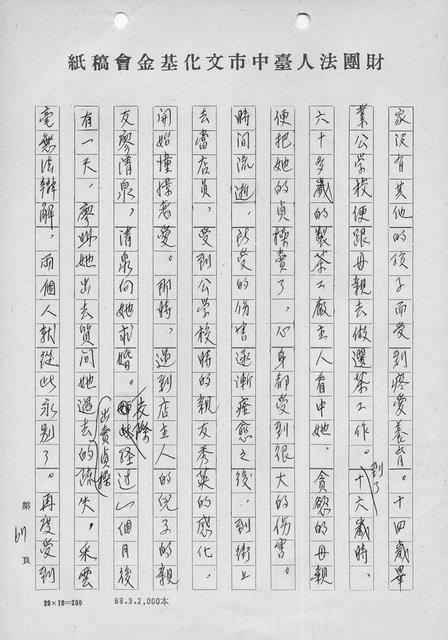 財團法人臺中市文化基金會稿紙
家沒有其他的孩子而受到疼愛養育。十四歲畢
業公學校便跟母親去做選茶工作。到了十六歲時,
六十多歲的製茶工廠主人看中她,貪慾的母親
便把她的貞操賣了,心身都受到很大的傷害。
時間流逝,所受的傷害逐漸痊愈之後,到街上
去當店員,受到公學校時的親友秀英的感化,
開始憧憬著愛。那時,遇到店主人的兒子的親
友廖清泉,清泉向她求婚。交際經過一個月後
有一天,廖叫她出去質問她過去出賣貞操的疏失,采雲
毫無法辯解,兩個人就從此永別了。再度受到
第67頁
20×10=200
68.3.2,000本